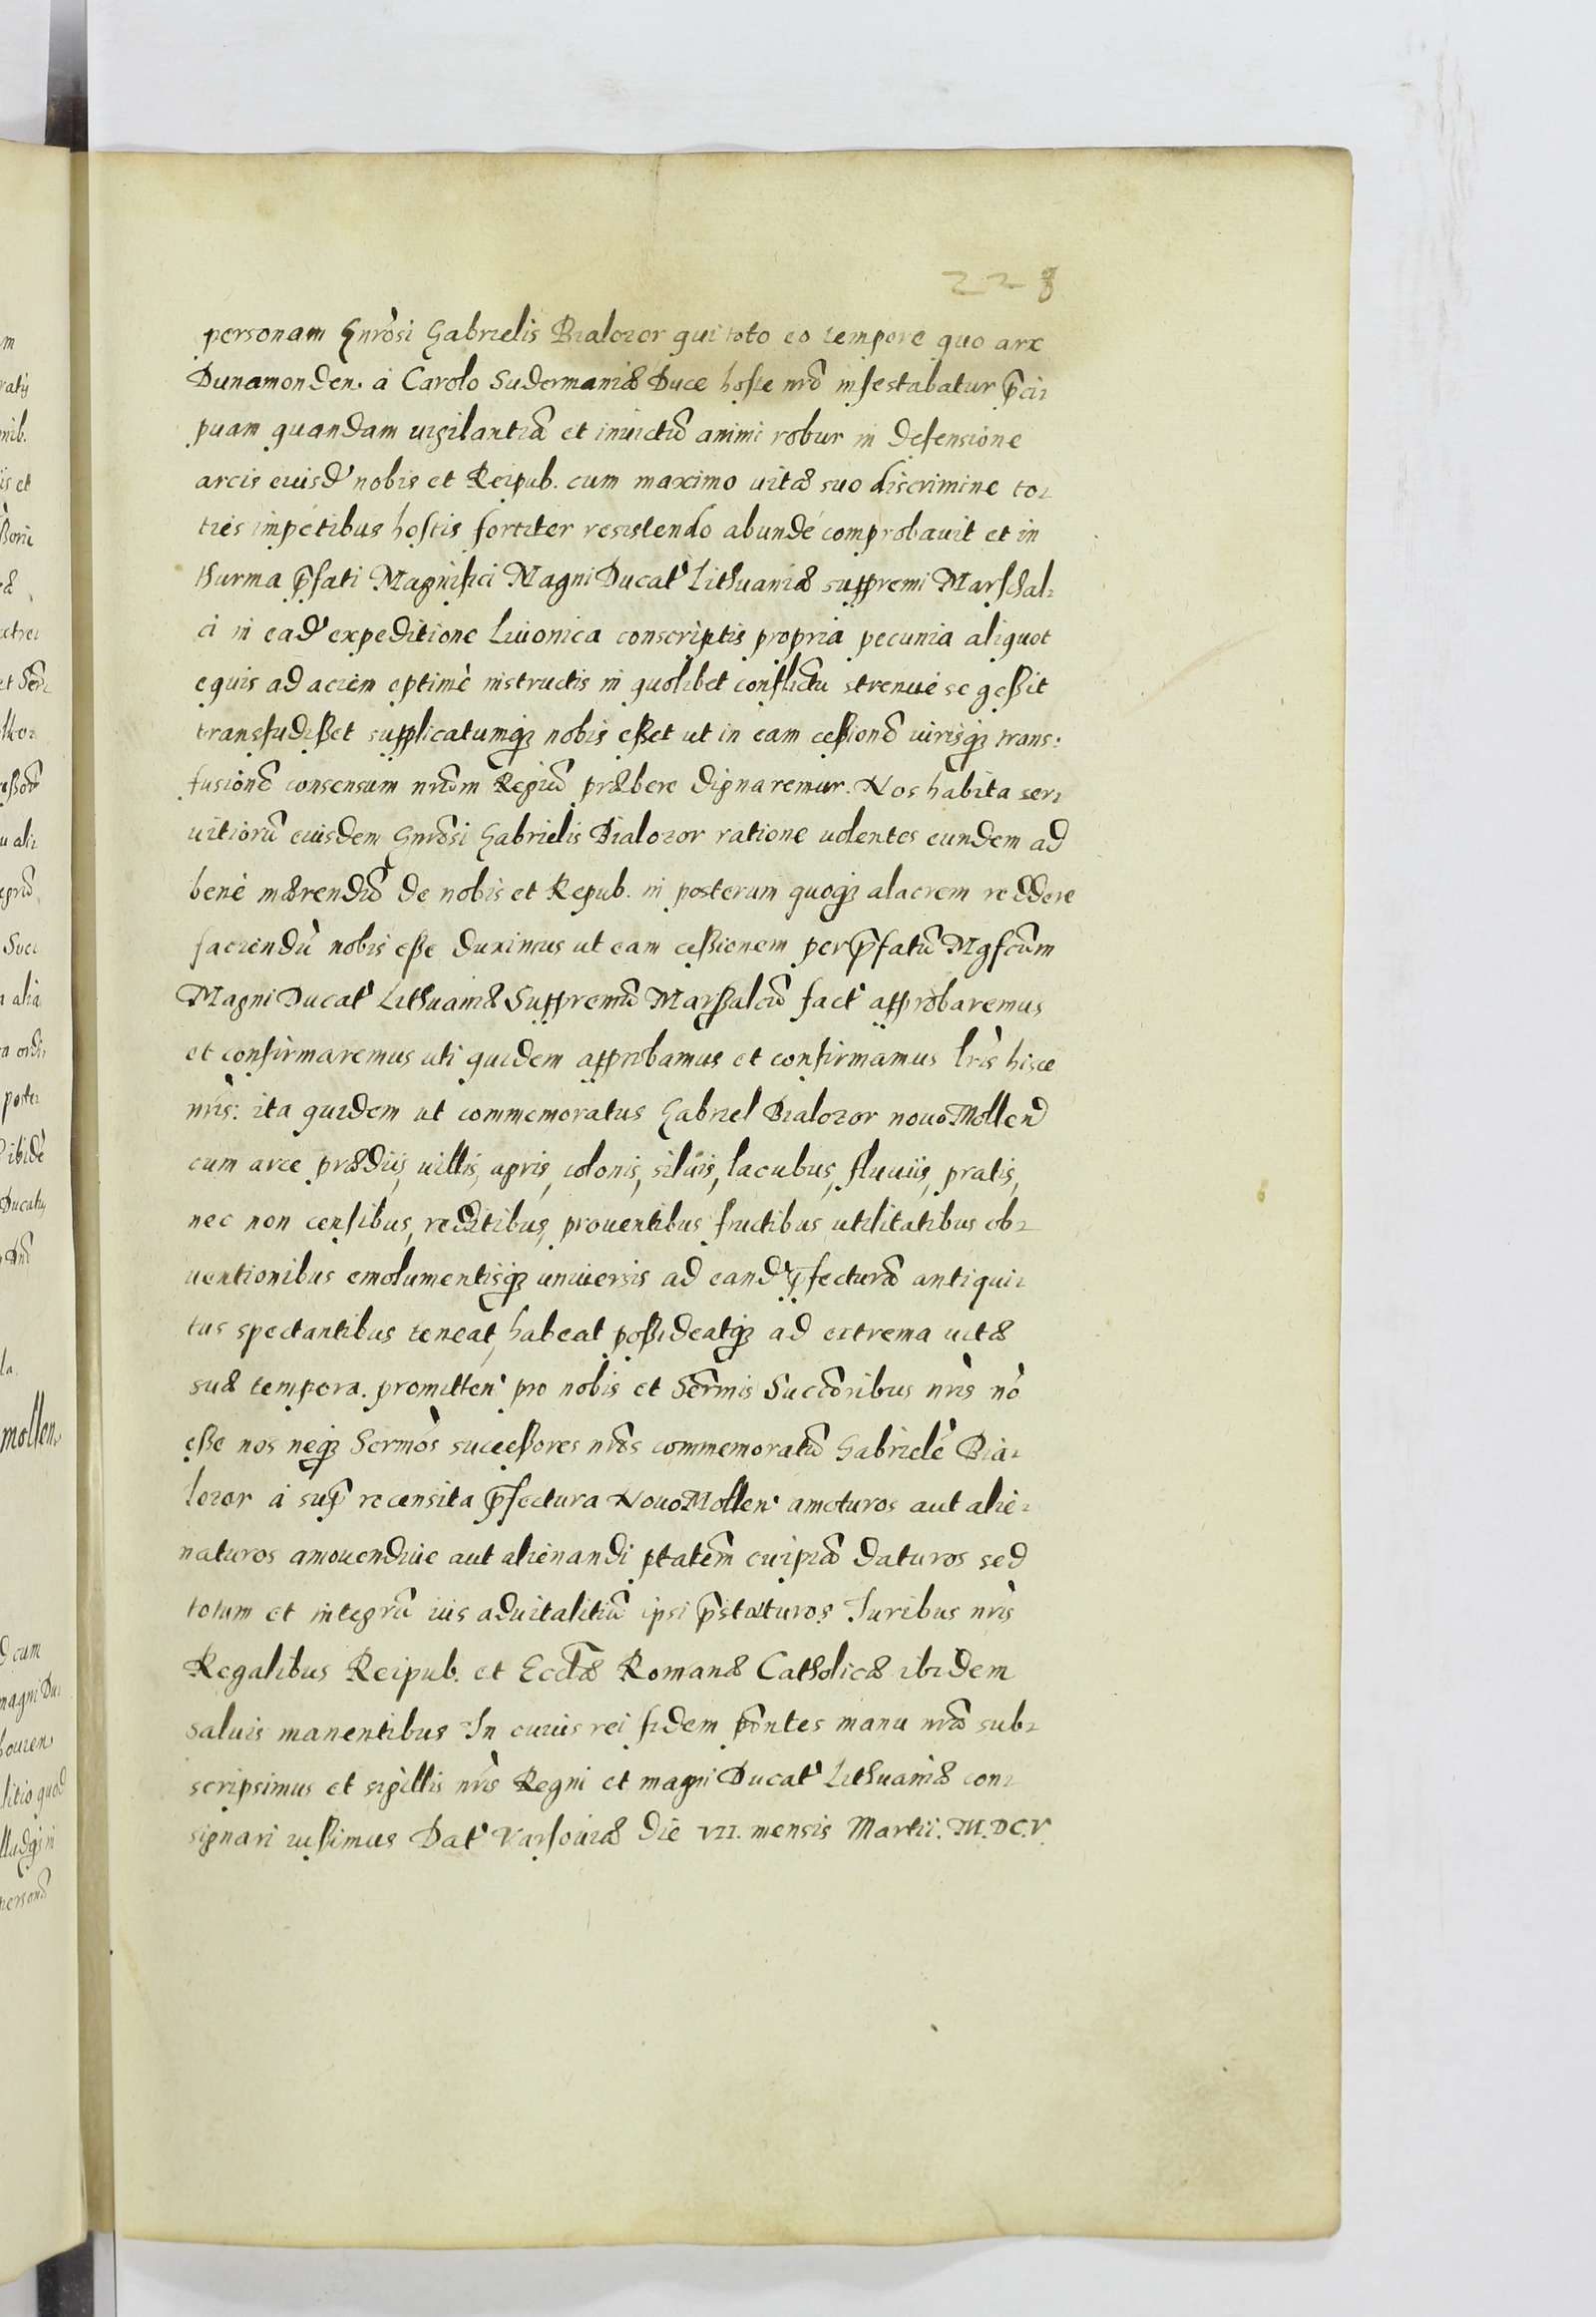 228
personam Gnrosi Gabrielis Bialozor qui toto eo tempore quo arx
Dunamonden. à Carolo Sudermaniæ Duce hoste nrõ infestabatur p̃ci-
puam quandam uigilantiã et inuictũ animi robur in defensione
arcis eiusd' nobis et Reipub. cum maximo uitæ suo discrimine to-
ties impetibus hostis fortiter resistendo abundé comprobauit et in
thurma p̃fati Magnifici Magni Ducat' Lithuaniæ suppremi Marschal-
ci in ead' expeditione Liuonica conscriptis propria pecunia aliquot
equis ad aciem optimè instructis in quolibet conflictu strenué se geßit
transfudißet supplicatumq3 nobis eßet ut in eam ceßionẽ iurisq3 trans:
fusionẽ consensum nrũm Regiũ præbere dignaremur. Nos habita ser-
uitiorũ eiusdem Gnrõsi Gabrielis Bialozor ratione uolentes eundem ad
benè mærendũ de nobis et Repub. in posterum quoq3 alacrem reddere
faciendũ nobis eße duximus ut eam ceßionem per p̃fatũ Mgfcũm
Magni Ducat' Lithuaniæ Suppremũ Marschalcũ fact' approbaremus
et confirmaremus uti quidem approbamus et confirmamus lris hisce
nris: ita quidem ut commemoratus Gabriel Bialozor nouo Mollend
cum arce prædiis, uillis, agris, colonis, siluis, lacubus, fluuiis, pratis,
nec non censibus, redditibus, prouentibus fructibus utilitatibus ob-
uentionibus emolumentisq3 uniuersis ad eand' p̃fecturã antiqui-
tus spectantibus teneat, habeat poßideatq3 ad extrema uitæ
suæ tempora. promitten' pro nobis et Serm̃is Succõribus nris nõ
eße nos neq3 Sermos succeßores nrõs commemoratũ Gabrielẽ Bia-
lozor à sup̃ recensita p̃fectura NouoMollen' amoturos aut alie-
naturos amouendiue aut alienandi ptatẽm cuipiã daturos sed
totum et integrũ ius aduitalitiũ ipsi p̃staturos Iuribus nris
Regalibus Reipub. et Ecclæ Romanæ Catholicæ ibidem
saluis manentibus In cuius rei fidem pñtes manu nrã sub-
scripsimus et sigillis nris Regni et magni Ducat' Lithuaniæ con-
signari iußimus Dat' Varsouiæ die VII. mensis Martii. M.DC.V.